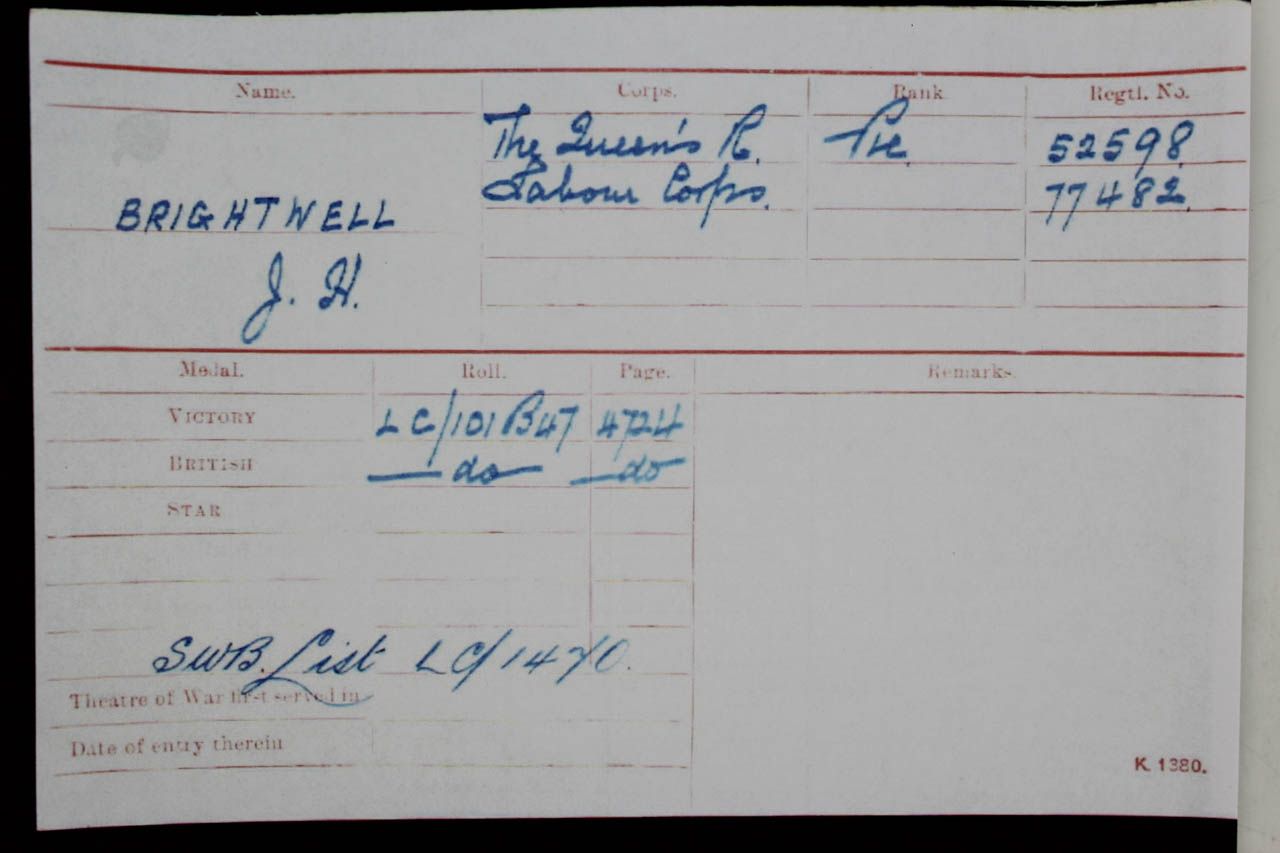 Name. Corps. Rank Regtl. No.
The Queen's R. Pte. 52598.
Labour Corps. 77482.
BRIGHTWELL
J. H.
Medal. Roll. Page. Remarks.
VICTORY LC/101B47 4724
BRITISH do do
STAR
SWB. List LC/1470.
Theatre of War first served in
Date of entry therein
K. 1380.